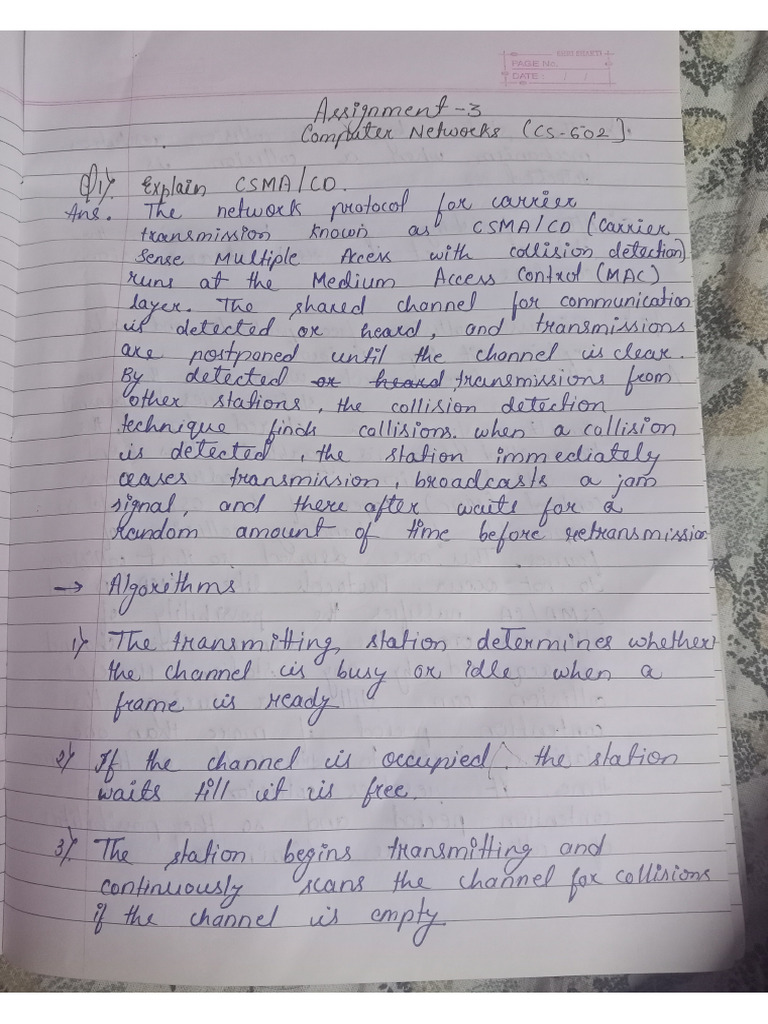 SHRI BHAKTI
PAGE No.
DATE : / /
Assignment - 3
Computer Networks (CS-602).
Q1) Explain CSMA/CD.
Ans. The network protocol for carrier
transmission known as CSMA/CD (Carrier
Sense Multiple Access with collision detection)
runs at the Medium Access Control (MAC)
layer. The shared channel for communication
is detected or heard, and transmissions
are postponed until the channel is clear.
By detected or heard transmissions from
other stations, the collision detection
technique finds collisions. when a collision
is detected, the station immediately
ceases transmission, broadcasts a jam
signal, and there after waits for a
random amount of time before retransmission
→ Algorithms
1) The transmitting station determines whether
the channel is busy or idle when a
frame is ready
2) If the channel is occupied, the station
waits till it is free.
3) The station begins transmitting and
continuously scans the channel for collisions
if the channel is empty